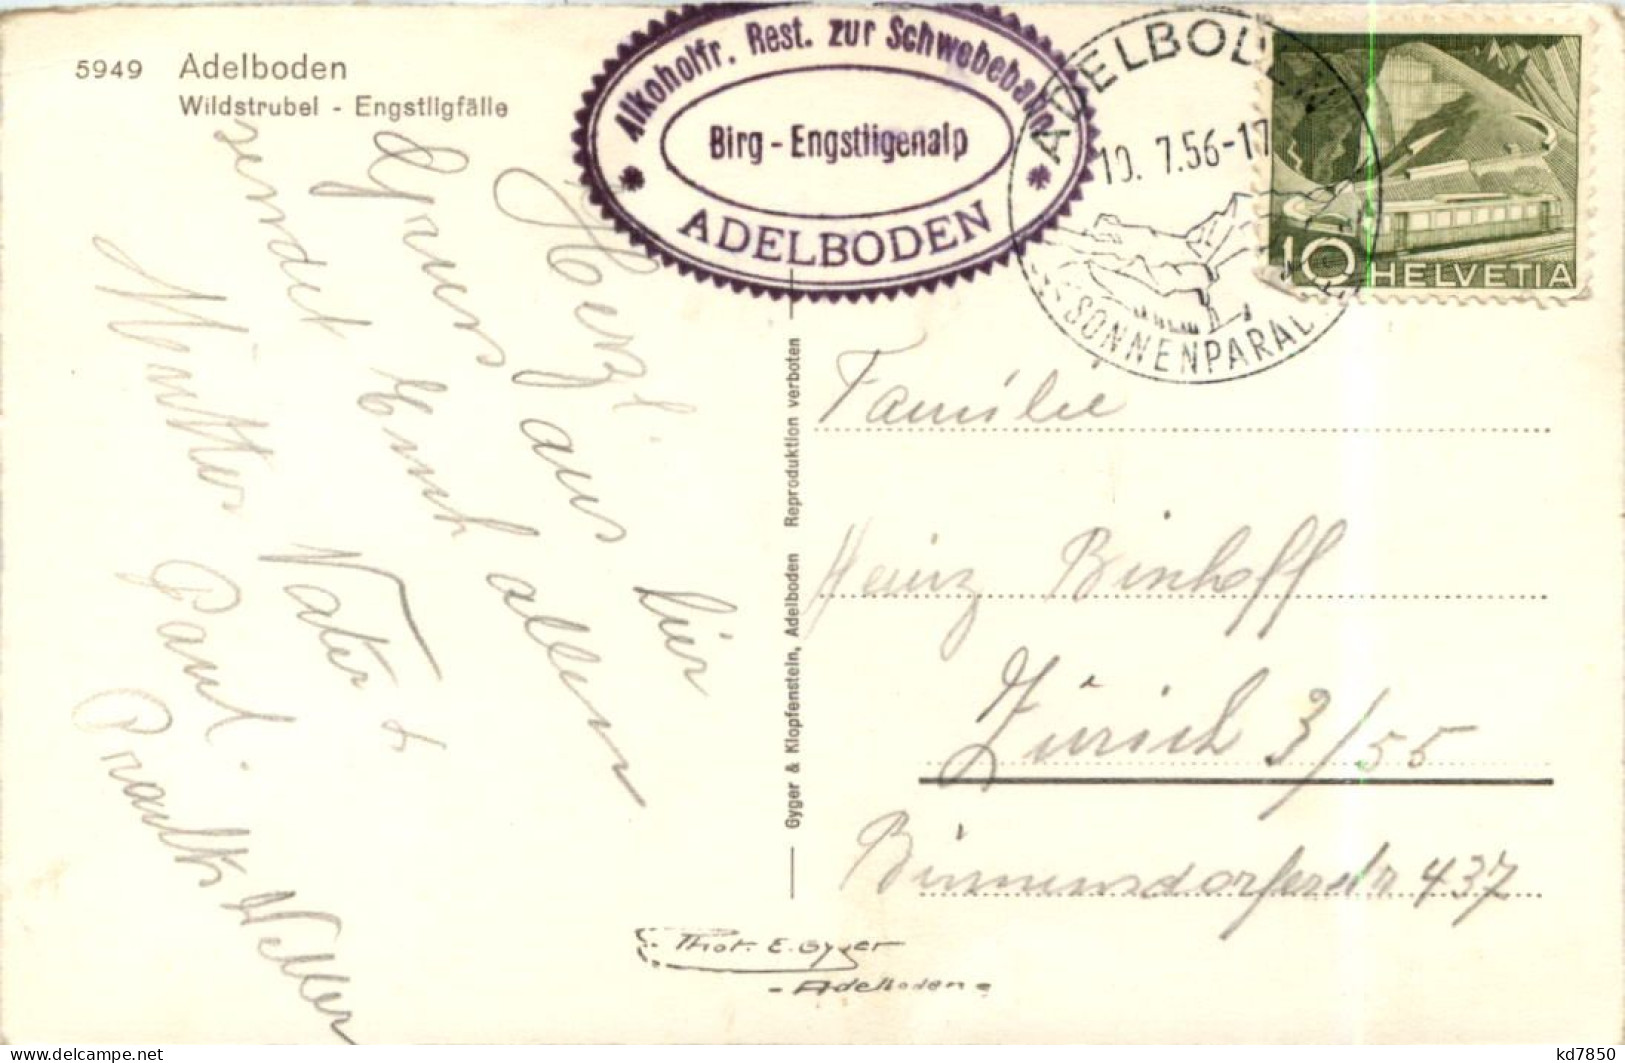 5949 Adelboden
Wildstrubel - Engstligfälle
Alkoholfr. Rest. zur Schwebebahn
Birg - Engstligenalp
* ADELBODEN *
ADELBODEN
10. 7.56-17
SONNENPARAD
10 HELVETIA
Herzl.
Grüss aus hier
sendet Euch allen
Mutter Vater &
Paul.
Weller
Gyger & Klopfenstein, Adelboden Reproduktion verboten
Familie
Heinz Binhoff
Zürich 3/55
Birmensdorferstr 437
Phot. E. Gyger
- Adelboden -
kd7850